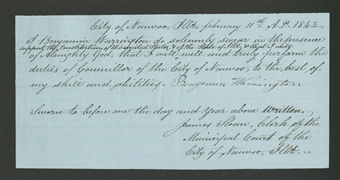 City of Nauvoo, Ills, february 11th A.D. 1843.
I Benjamin Warrington do solemnly swear in the presence
support the Constitution of the United States & of the State of Ills, & that I will
of Almighty God, that I will well and truly perform the
duties of Councillor of the City of Nauvoo, to the best of
my skill and abilities. Benjamin Warrington
Sworn to before me the day and year above written.
James Sloan, Clerk of the
Municipal Court of the
City of Nauvoo, Ills.